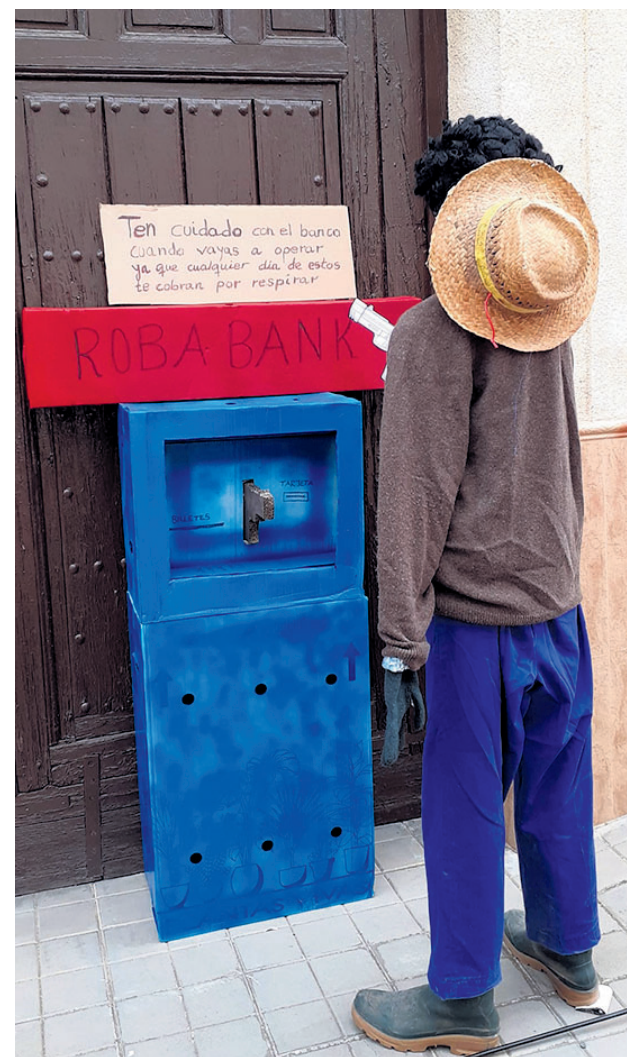 Ten cuidado con el banco
cuando vayas a operar
ya que cualquier día de estos
te cobran por respirar
ROBA BANK
TARJETA
BILLETES